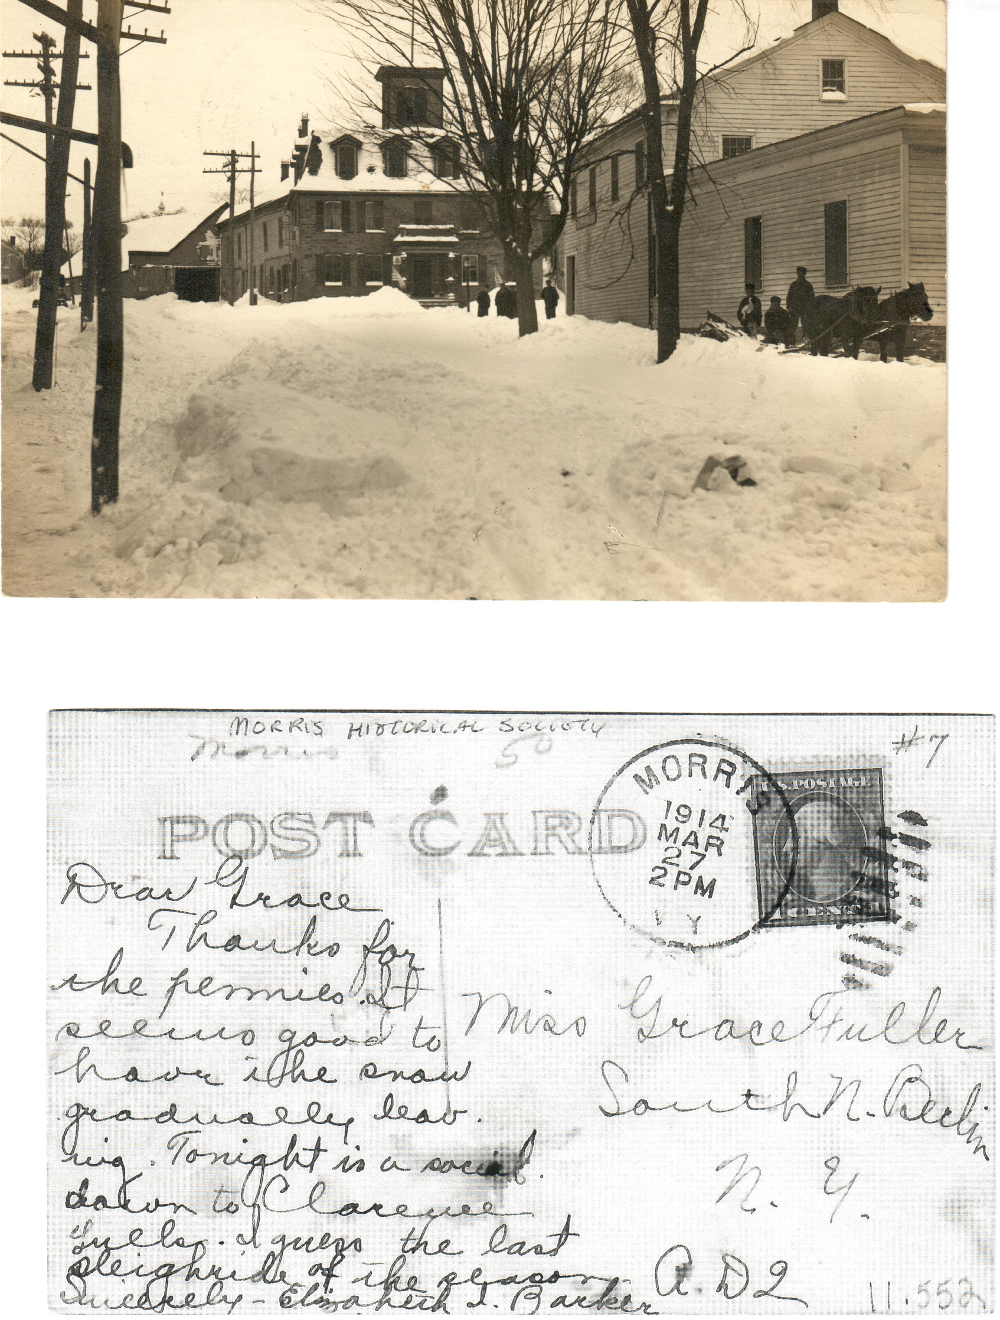 MORRIS HISTORICAL SOCIETY
Morris 50
#7
POST CARD
MORRIS
1914
MAR
27
2 PM
N Y
U.S. POSTAGE
CENT
Dear Grace
Thanks for
the pennies. It
seems good to
have the snow
gradually leav-
ing. Tonight is a social
down to Clarence
I guess the last
sleighride of the season.
Sincerely - Elizabeth I. Barker
Miss Grace Fuller
South N. Berlin
N. Y.
R.D2
11.552